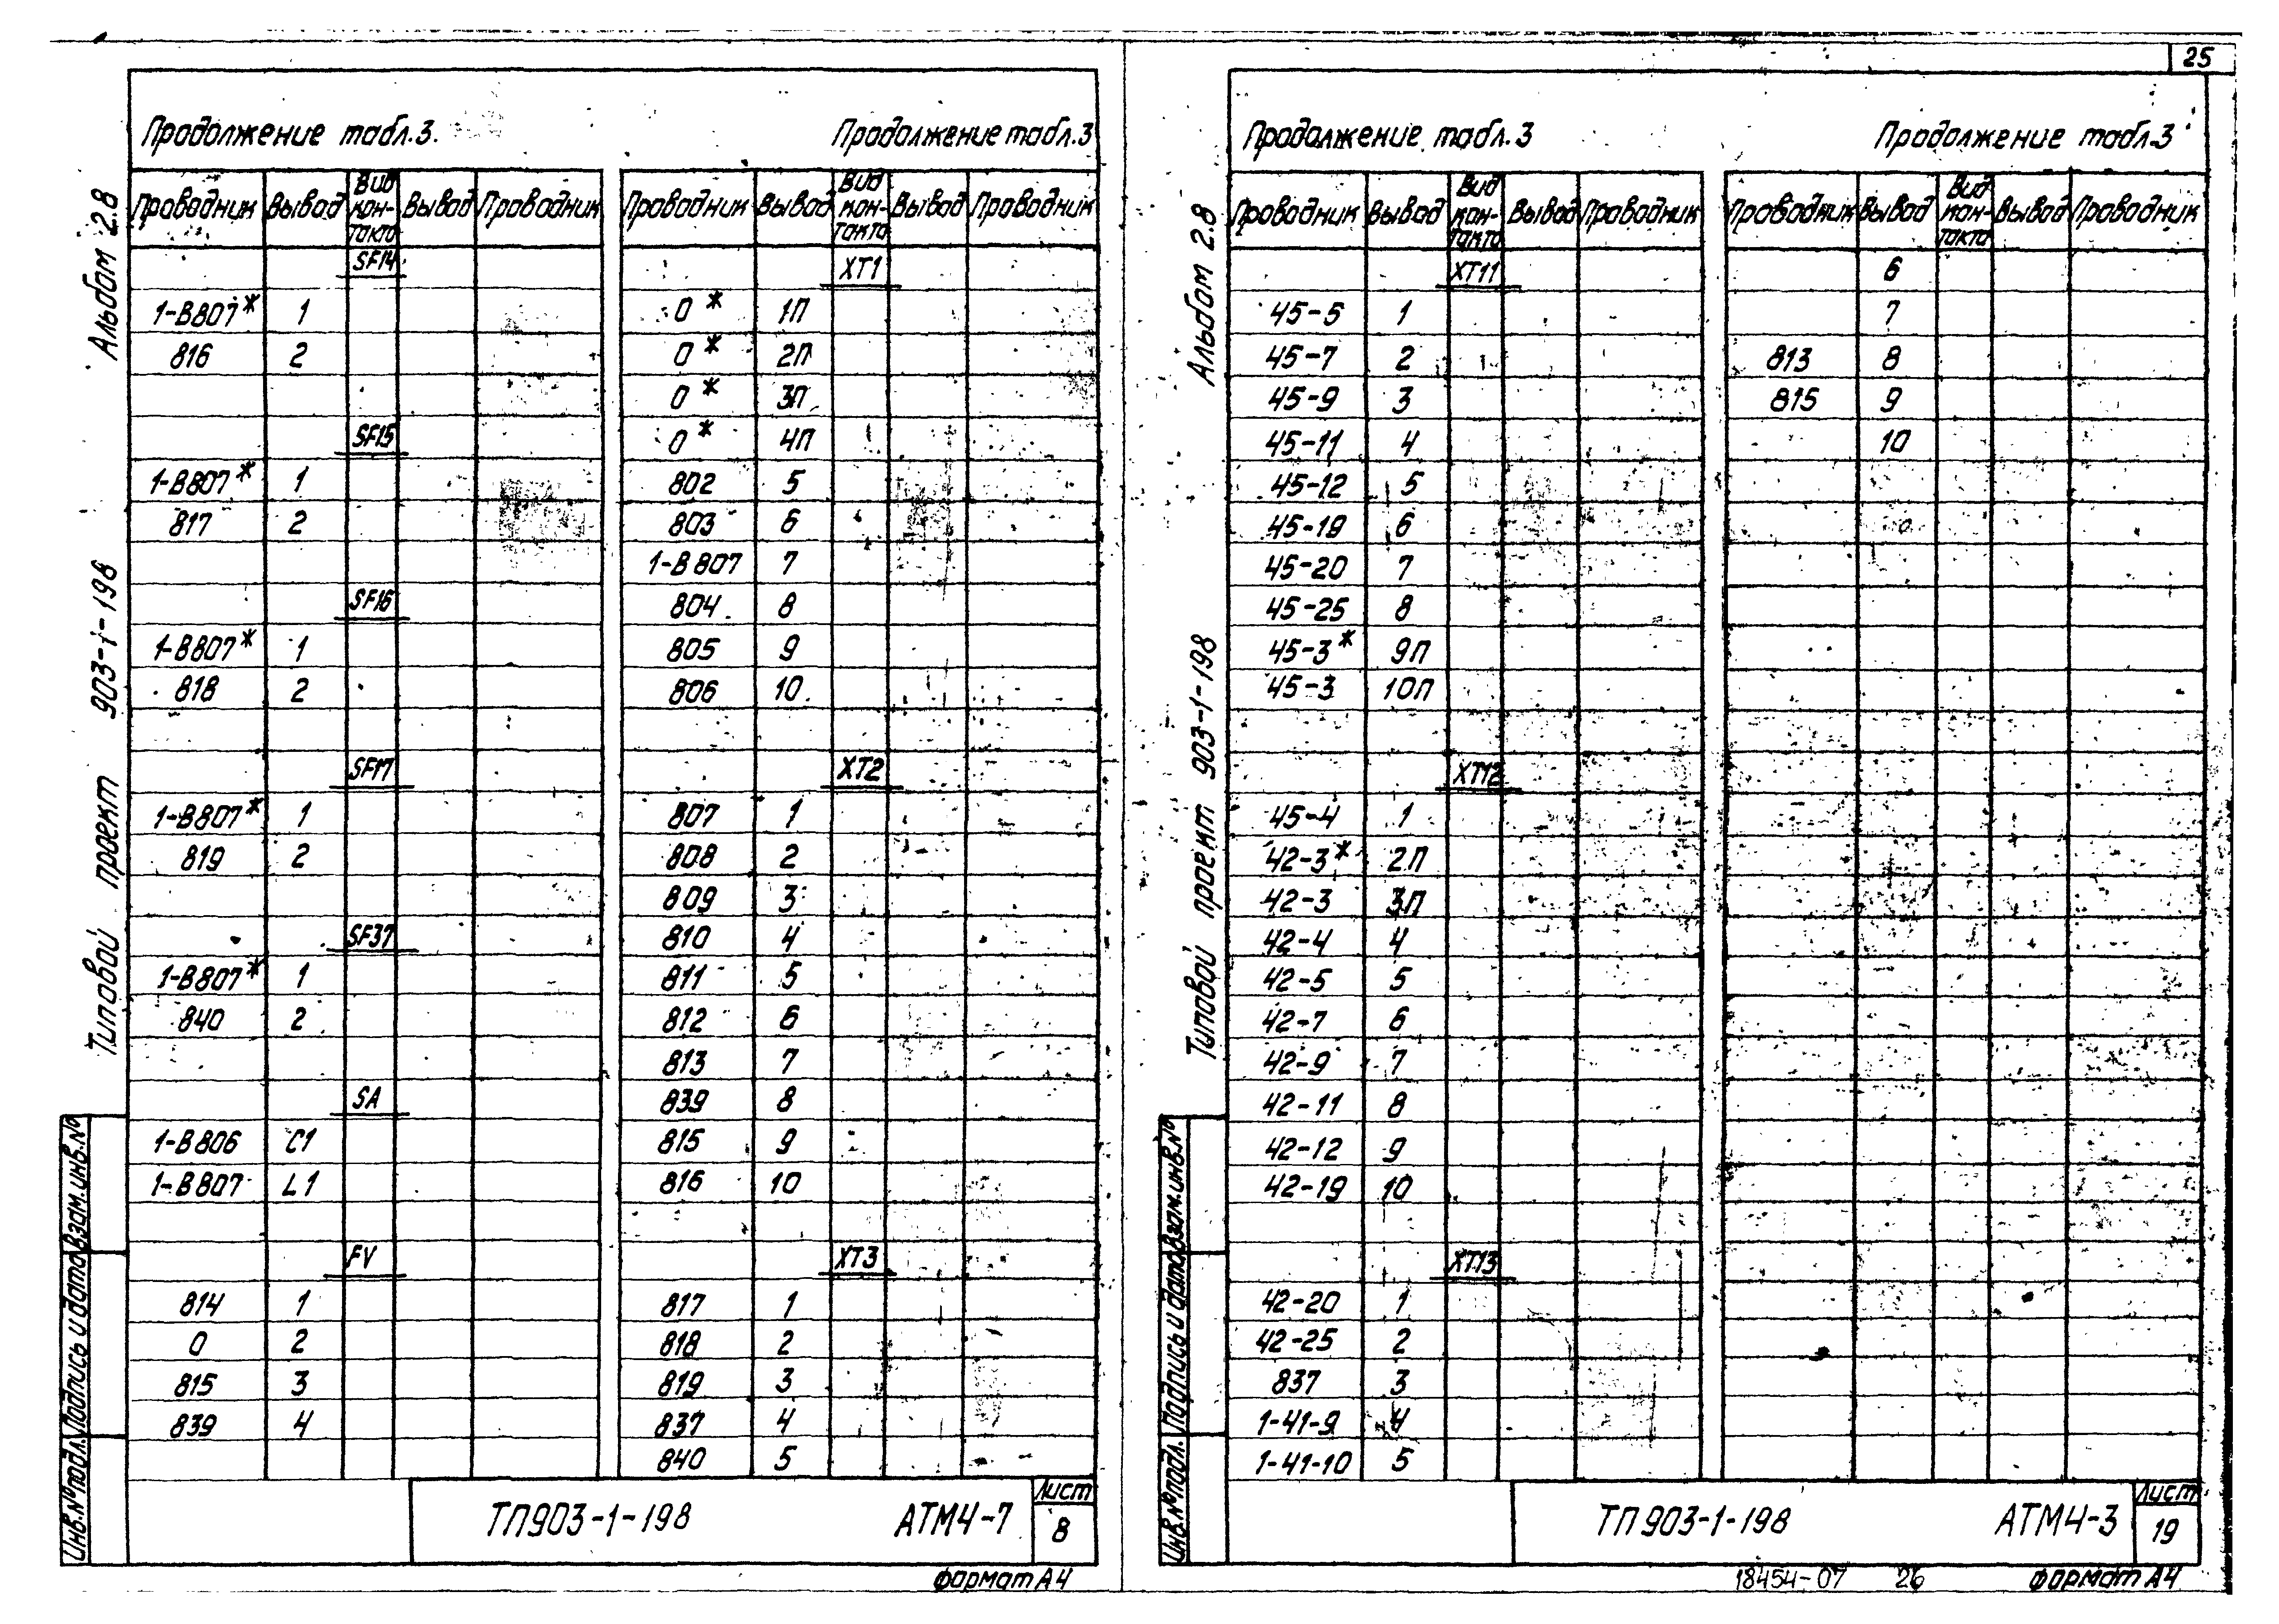 25
Альбом 2.8
Типовой проект 903-1-198
Продолжение табл.3.
Проводник Вывод Вид кон-такта Вывод Проводник
SF14
1-В807* 1
816 2
SF15
1-В807* 1
817 2
SF16
1-В807* 1
818 2
SF17
1-В807* 1
819 2
SF37
1-В807* 1
840 2
SA
1-В806 C1
1-В807 L1
FV
814 1
0 2
815 3
839 4
Продолжение табл.3
Проводник Вывод Вид кон-такта Вывод Проводник
XT1
0* 1П
0* 2П
0* 3П
0* 4П
802 5
803 6
1-В807 7
804 8
805 9
806 10
XT2
807 1
808 2
809 3
810 4
811 5
812 6
813 7
839 8
815 9
816 10
XT3
817 1
818 2
819 3
837 4
840 5
Инв.№подл. Подпись и дата Взам.инв.№
ТП903-1-198 АТМ4-7 Лист 8
формат А4
Альбом 2.8
Типовой проект 903-1-198
Продолжение табл.3
Проводник Вывод Вид кон-такта Вывод Проводник
XT11
45-5 1
45-7 2
45-9 3
45-11 4
45-12 5
45-19 6
45-20 7
45-25 8
45-3* 9П
45-3 10П
XT12
45-4 1
42-3* 2П
42-3 3П
42-4 4
42-5 5
42-7 6
42-9 7
42-11 8
42-12 9
42-19 10
XT13
42-20 1
42-25 2
837 3
1-41-9 4
1-41-10 5
Продолжение табл.3
Проводник Вывод Вид кон-такта Вывод Проводник
6
7
813 8
815 9
10
Инв.№подл. Подпись и дата Взам.инв.№
ТП903-1-198 АТМ4-3 Лист 19
18454-07 26 формат А4